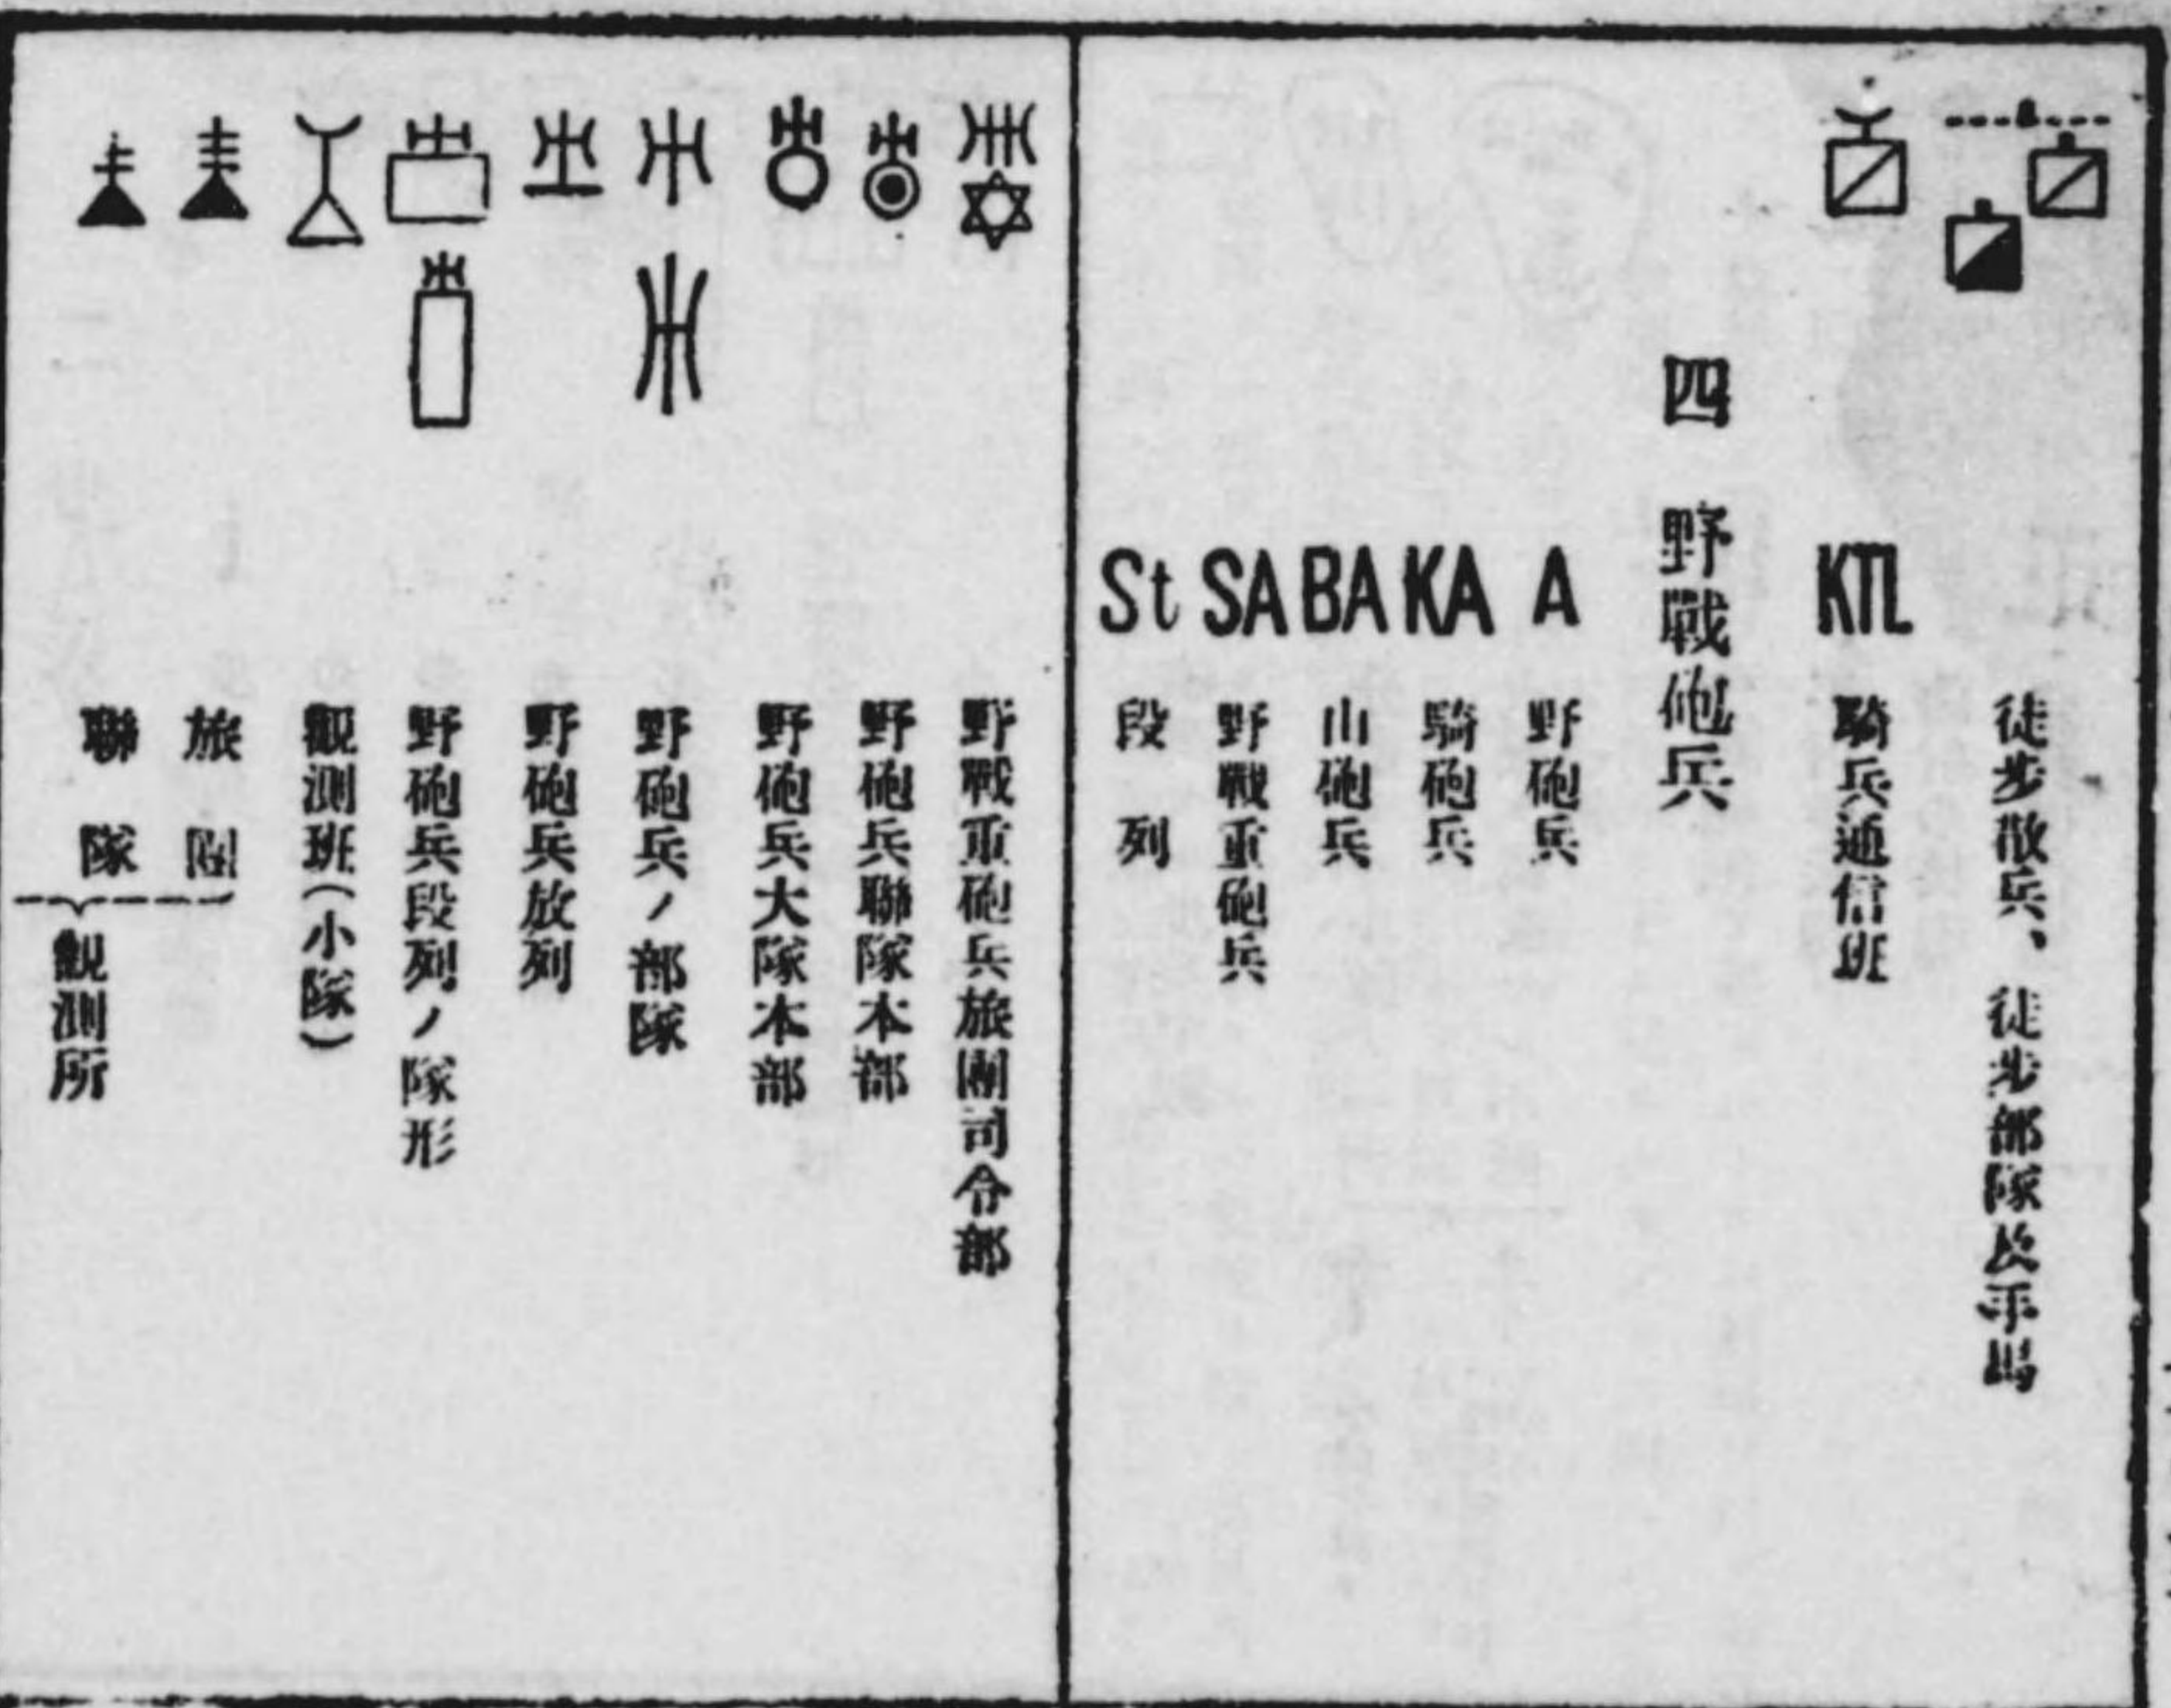 徒步散兵、徒步部隊及手馬
KTL 騎兵通信班
四 野戰砲兵
A 野砲兵
KA 騎砲兵
BA 山砲兵
SA 野戰重砲兵
St 段列
野戰重砲兵旅團司令部
野砲兵聯隊本部
野砲兵大隊本部
野砲兵ノ部隊
野砲兵放列
野砲兵段列ノ隊形
觀測班(小隊)
旅團
聯隊
觀測所